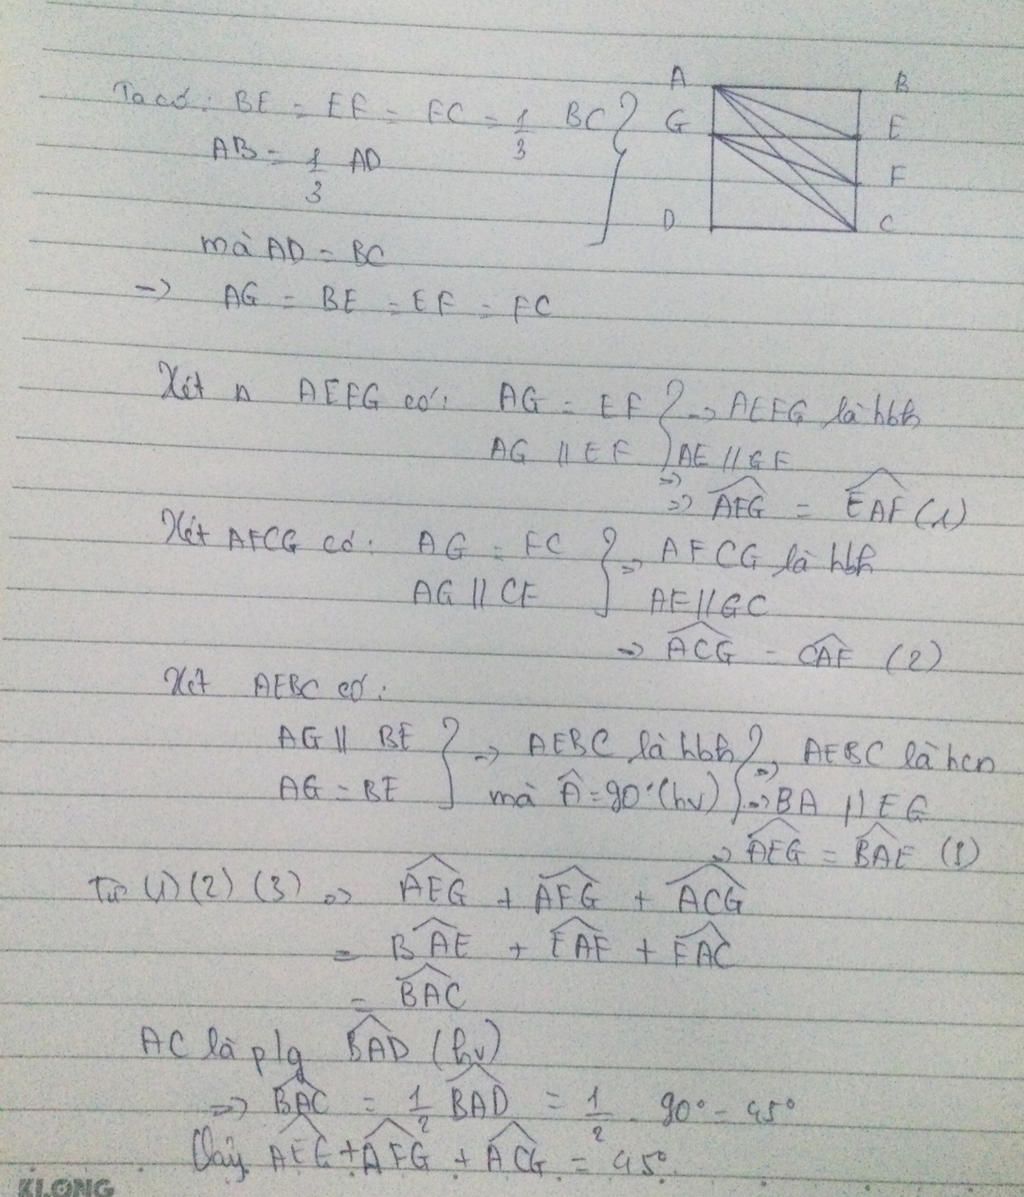 Ta có: BE = EF = FC = 1/3 BC
AB = 1/3 AD
mà AD = BC
=> AG = BE = EF = FC
A B
G E
F
D C
Xét AEFG có: AG = EF => AEFG là hbh
AG // EF => AE // GF
=> \widehat{AFG} = \widehat{EAF} (1)
Xét AFCG có: AG = FC => AFCG là hbh
AG // CF AF // GC
=> \widehat{ACG} = \widehat{CAF} (2)
Xét AEBC có:
AG // BE => AEBC là hbh => AEBC là hcn
AG = BE mà \widehat{A} = 90° (hv) => BA // EG
=> \widehat{AEG} = \widehat{BAE}
Từ (1) (2) (3) => \widehat{AEG} + \widehat{AFG} + \widehat{ACG}
= \widehat{BAE} + \widehat{EAF} + \widehat{FAC}
= \widehat{BAC}
AC là p/g \widehat{BAD} (hv)
=> \widehat{BAC} = 1/2 \widehat{BAD} = 1/2 . 90° = 45°
Vậy \widehat{AEG} + \widehat{AFG} + \widehat{ACG} = 45°.
KLONG